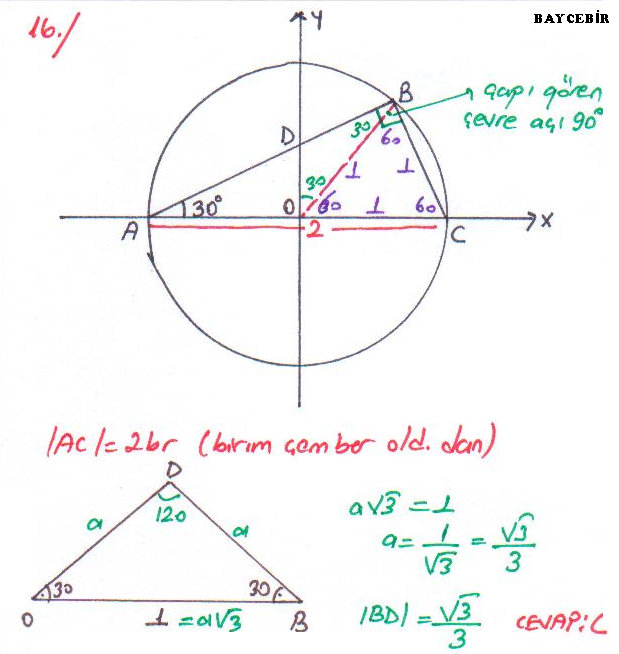 16./
BAYCEBİR
Y
B
çapı gören
çevre açı 90°
D
30
60
1
1
30
30°
O
60
1
60
X
A
2
C
|AC|=2br (birim çember old. dan)
D
a
120
a
30
30
O
1 = a√3
B
a√3 = 1
a = 1/√3 = √3/3
|BD| = √3/3
CEVAP: C